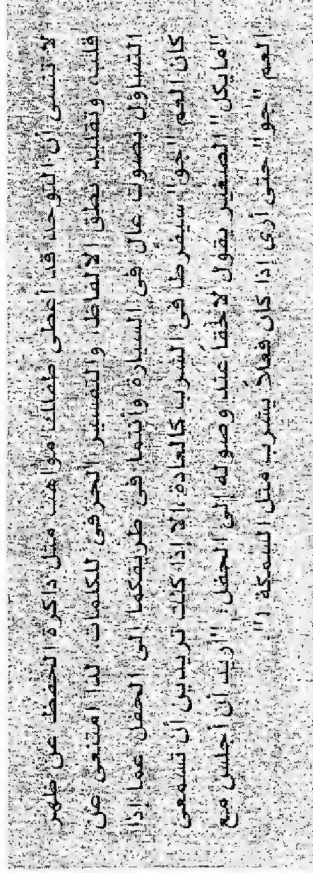 لا تنسى أن التوحد قد أعطى طفلك مواهب مثل ذاكرة الحفظ عن ظهر
قلب، وتقليد نطق الألفاظ والتفسير الحرفى للكلمات. لذا امتنعى عن
التساؤل بصوت عال فى السيارة وأنتما فى طريقكما إلى الحفل عما إذا
كان العم "جو" سيفرط فى الشرب كالعادة، إلا إذا كنت تريدين أن تسمعى
"مايكل" الصغير يقول لاحقاً عند وصوله إلى الحفل: "أريد أن أجلس مع
العم "جو" حتى أرى إذا كان فعلاً يشرب مثل السمكة !"